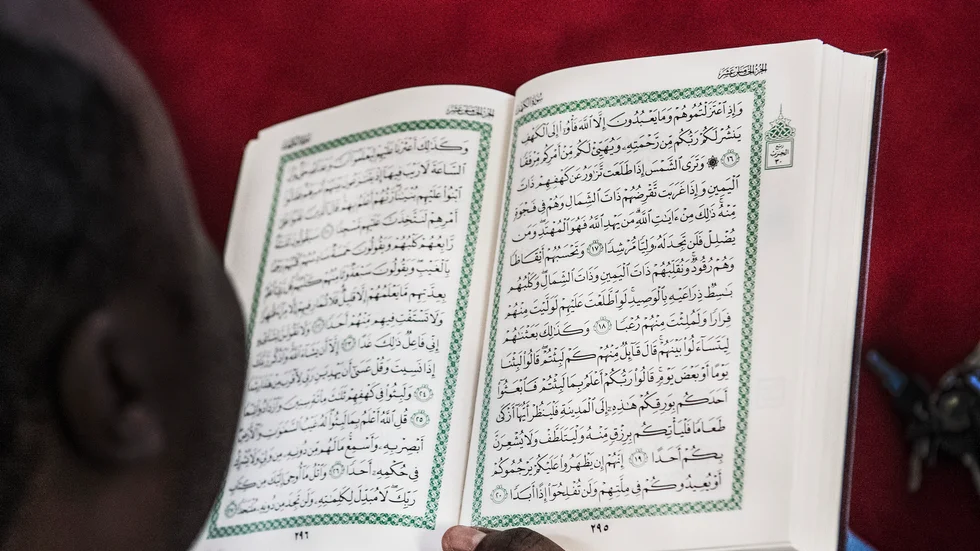 سُورَةُ الكَهْفِ
الجُزْءُ الخَامِسَ عَشَرَ
وَإِذِ ٱعْتَزَلْتُمُوهُمْ وَمَا يَعْبُدُونَ إِلَّا ٱللَّهَ فَأْوُۥٓا۟ إِلَى ٱلْكَهْفِ
يَنشُرْ لَكُمْ رَبُّكُم مِّن رَّحْمَتِهِۦ وَيُهَيِّئْ لَكُم مِّنْ أَمْرِكُم مِّرْفَقًا
﴿١٦﴾ ۞ وَتَرَى ٱلشَّمْسَ إِذَا طَلَعَت تَّزَٰوَرُ عَن كَهْفِهِمْ ذَاتَ
ٱلْيَمِينِ وَإِذَا غَرَبَت تَّقْرِضُهُمْ ذَاتَ ٱلشِّمَالِ وَهُمْ فِى فَجْوَةٍ
مِّنْهُ ۚ ذَٰلِكَ مِنْ ءَايَٰتِ ٱللَّهِ ۗ مَن يَهْدِ ٱللَّهُ فَهُوَ ٱلْمُهْتَدِ ۖ وَمَن
يُضْلِلْ فَلَن تَجِدَ لَهُۥ وَلِيًّا مُّرْشِدًا ﴿١٧﴾ وَتَحْسَبُهُمْ أَيْقَاظًا
وَهُمْ رُقُودٌ ۚ وَنُقَلِّبُهُمْ ذَاتَ ٱلْيَمِينِ وَذَاتَ ٱلشِّمَالِ ۖ وَكَلْبُهُم
بَٰسِطٌ ذِرَاعَيْهِ بِٱلْوَصِيدِ ۚ لَوِ ٱطَّلَعْتَ عَلَيْهِمْ لَوَلَّيْتَ مِنْهُمْ
فِرَارًا وَلَمُلِئْتَ مِنْهُمْ رُعْبًا ﴿١٨﴾ وَكَذَٰلِكَ بَعَثْنَٰهُمْ
لِيَتَسَآءَلُوا۟ بَيْنَهُمْ ۚ قَالَ قَآئِلٌ مِّنْهُمْ كَمْ لَبِثْتُمْ ۖ قَالُوا۟ لَبِثْنَا
يَوْمًا أَوْ بَعْضَ يَوْمٍ ۚ قَالُوا۟ رَبُّكُمْ أَعْلَمُ بِمَا لَبِثْتُمْ فَٱبْعَثُوٓا۟
أَحَدَكُم بِوَرِقِكُمْ هَٰذِهِۦٓ إِلَى ٱلْمَدِينَةِ فَلْيَنظُرْ أَيُّهَآ أَزْكَىٰ
طَعَامًا فَلْيَأْتِكُم بِرِزْقٍ مِّنْهُ وَلْيَتَلَطَّفْ وَلَا يُشْعِرَنَّ
بِكُمْ أَحَدًا ﴿١٩﴾ إِنَّهُمْ إِن يَظْهَرُوا۟ عَلَيْكُمْ يَرْجُمُوكُمْ
أَوْ يُعِيدُوكُمْ فِى مِلَّتِهِمْ وَلَن تُفْلِحُوٓا۟ إِذًا أَبَدًا ﴿٢٠﴾
٢٩٥
الجُزْءُ الخَامِسَ عَشَرَ
وَكَذَٰلِكَ أَعْثَرْنَا عَلَيْهِمْ لِيَعْلَمُوٓا۟
ٱلسَّاعَةَ لَا رَيْبَ فِيهَآ
ٱبْنُوا۟ عَلَيْهِم بُنْيَٰنًا ۖ رَّبُّهُمْ أَعْلَمُ بِهِمْ ۚ قَالَ
أَمْرِهِمْ لَنَتَّخِذَنَّ عَلَيْهِم مَّسْجِدًا ﴿٢١﴾ سَيَقُولُونَ ثَلَٰثَةٌ
رَّابِعُهُمْ كَلْبُهُمْ وَيَقُولُونَ خَمْسَةٌ سَادِسُهُمْ كَلْبُهُمْ
بِٱلْغَيْبِ ۖ وَيَقُولُونَ سَبْعَةٌ وَثَامِنُهُمْ كَلْبُهُمْ
بِعِدَّتِهِم مَّا يَعْلَمُهُمْ إِلَّا قَلِيلٌ ۗ فَلَا تُمَارِ فِيهِمْ
وَلَا تَسْتَفْتِ فِيهِم مِّنْهُمْ أَحَدًا ﴿٢٢﴾ وَلَا تَقُولَنَّ
إِنِّى فَاعِلٌ ذَٰلِكَ غَدًا ﴿٢٣﴾ إِلَّآ أَن يَشَآءَ ٱللَّهُ ۚ وَٱذْكُر رَّبَّكَ
إِذَا نَسِيتَ وَقُلْ عَسَىٰٓ أَن يَهْدِيَنِ رَبِّى لِأَقْرَبَ مِنْ هَٰذَا رَشَدًا
﴿٢٤﴾ وَلَبِثُوا۟ فِى كَهْفِهِمْ ثَلَٰثَ مِا۟ئَةٍ سِنِينَ وَٱزْدَادُوا۟ تِسْعًا
﴿٢٥﴾ قُلِ ٱللَّهُ أَعْلَمُ بِمَا لَبِثُوا۟ ۖ لَهُۥ غَيْبُ ٱلسَّمَٰوَٰتِ وَٱلْأَرْضِ ۖ
أَبْصِرْ بِهِۦ وَأَسْمِعْ ۚ مَا لَهُم مِّن دُونِهِۦ مِن وَلِىٍّ وَلَا يُشْرِكُ
فِى حُكْمِهِۦٓ أَحَدًا ﴿٢٦﴾ وَٱتْلُ مَآ أُوحِىَ إِلَيْكَ مِن كِتَابِ
رَبِّكَ ۖ لَا مُبَدِّلَ لِكَلِمَٰتِهِۦ وَلَن تَجِدَ مِن دُونِهِۦ مُلْتَحَدًا ﴿٢٧﴾
٢٩٦